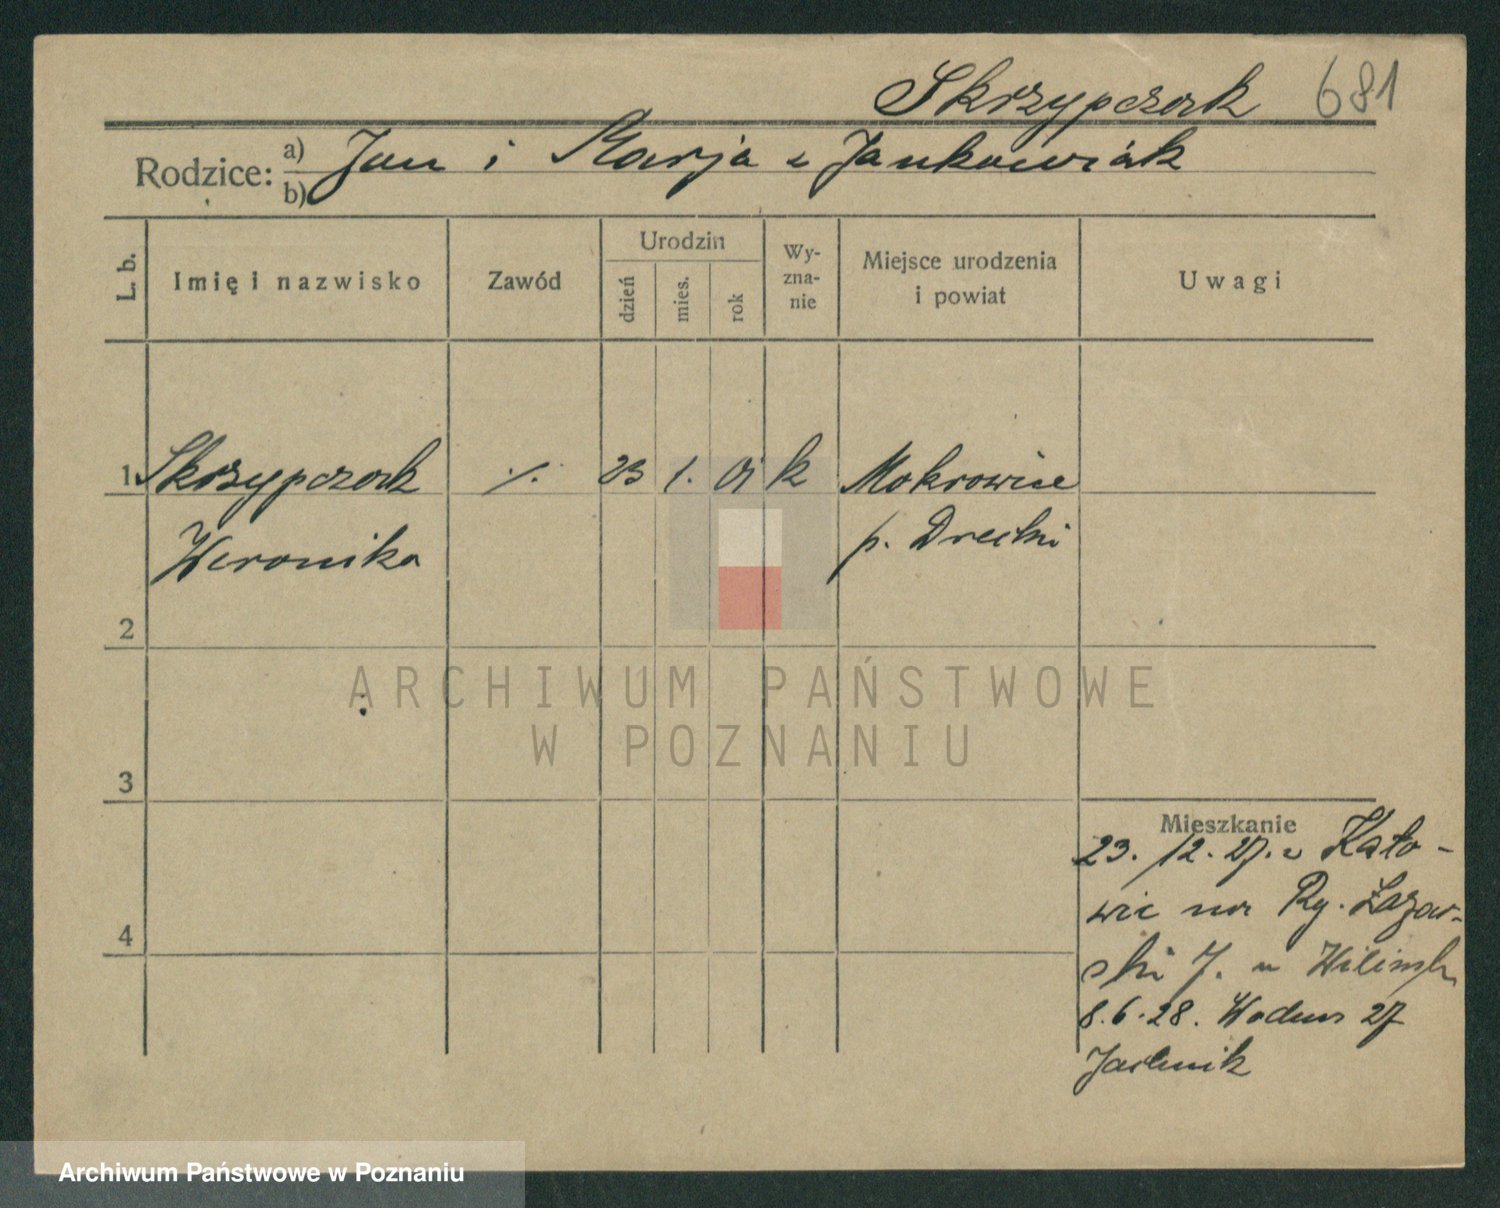 Skrzypczak 681
Rodzice: a) Jan i Marja z Jankowiak
b)
L. b. Imię i nazwisko Zawód Urodzin dzień mies. rok Wyznanie Miejsce urodzenia i powiat Uwagi
1 Skrzypczak ·/. 23 1. 01 k Mokrowice
Weronika p.
2
ARCHIWUM PAŃSTWOWE
W POZNANIU
3
Mieszkanie
23. 12. 27. z Kato-
wic na Ry. Łazar-
ski 7. u
4
8.6.28. Wodna 27
Archiwum Państwowe w Poznaniu